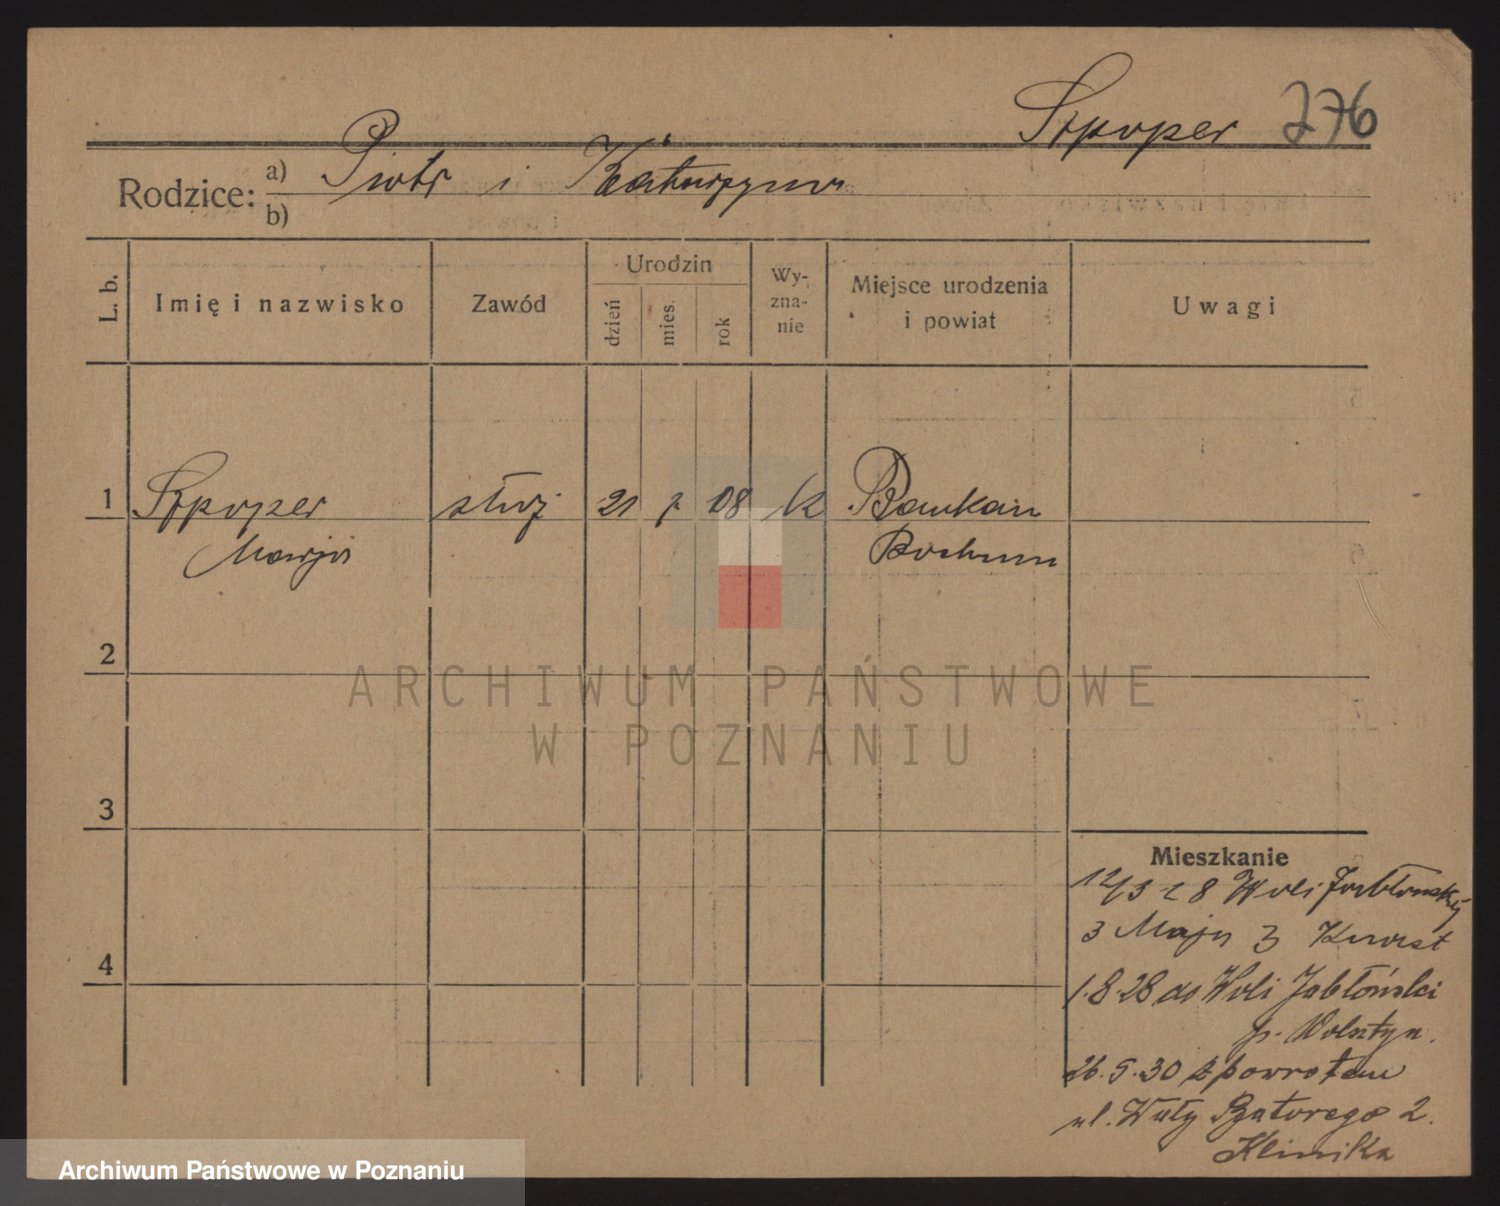 Szpoper 276
Rodzice: a) Piotr i Katarzyna
b)
L. b. Imię i nazwisko Zawód Urodzin dzień mies. rok Wy-zna-nie Miejsce urodzenia i powiat Uwagi
1 Szpoper służ 21 7 08 k Baukau
Marja Bochum
2
3
4
Mieszkanie
12/3 28 Woli Jabłonskiej
3 Maja 3
1.8.28 do Woli Jabłońskiej
p. Wolsztyn.
26.5.30 z powrotem
ul. Wały Batorego 2.
Klinika
ARCHIWUM PAŃSTWOWE
W POZNANIU
Archiwum Państwowe w Poznaniu